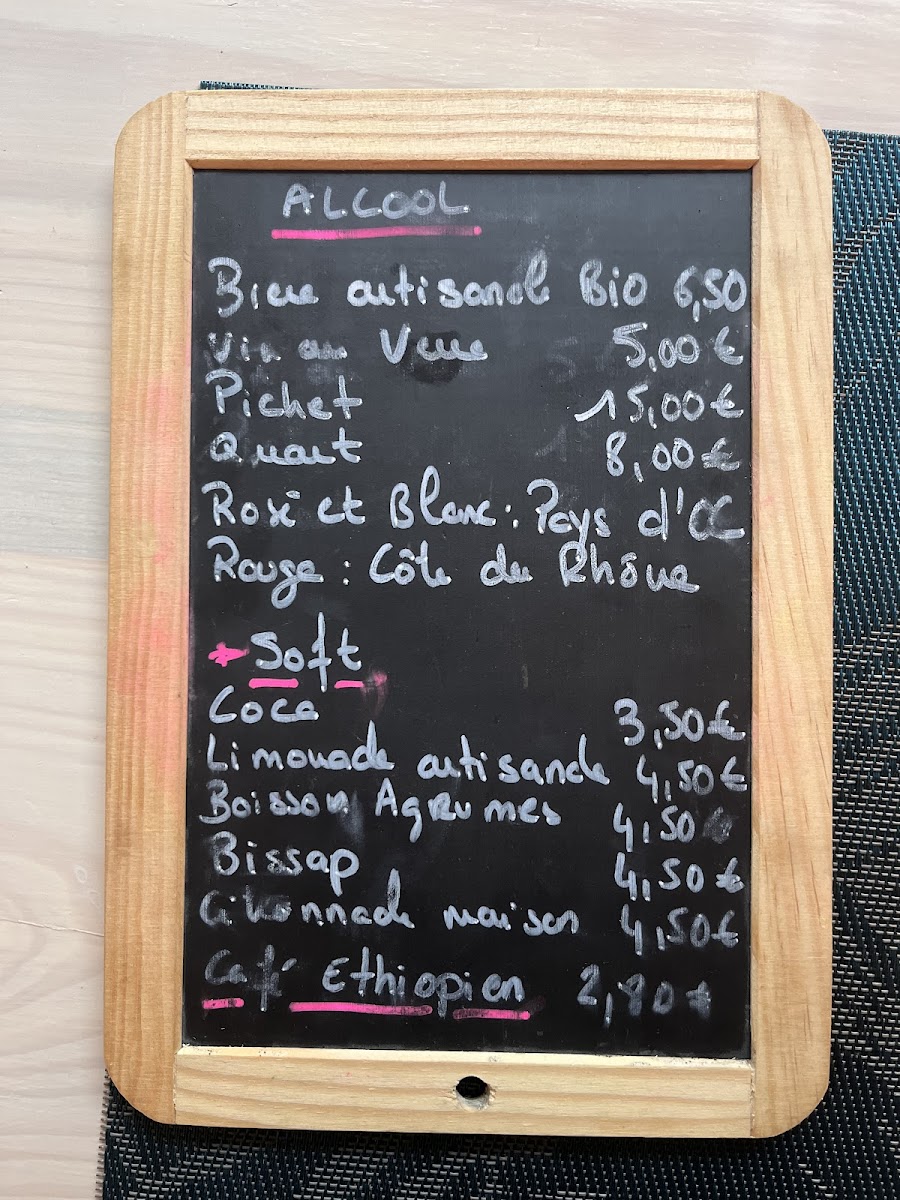 ALCOOL
Bière artisanale Bio 6,50
Vin au Verre 5,00 €
Pichet 15,00 €
Quart 8,00 €
Rosé et Blanc : Pays d'OC
Rouge : Côte du Rhône
Soft
Coca 3,50 €
Limonade artisanale 4,50 €
Boisson Agrumes 4,50
Bissap 4,50 €
Citronnade maison 4,50 €
Café Ethiopien 2,80 €